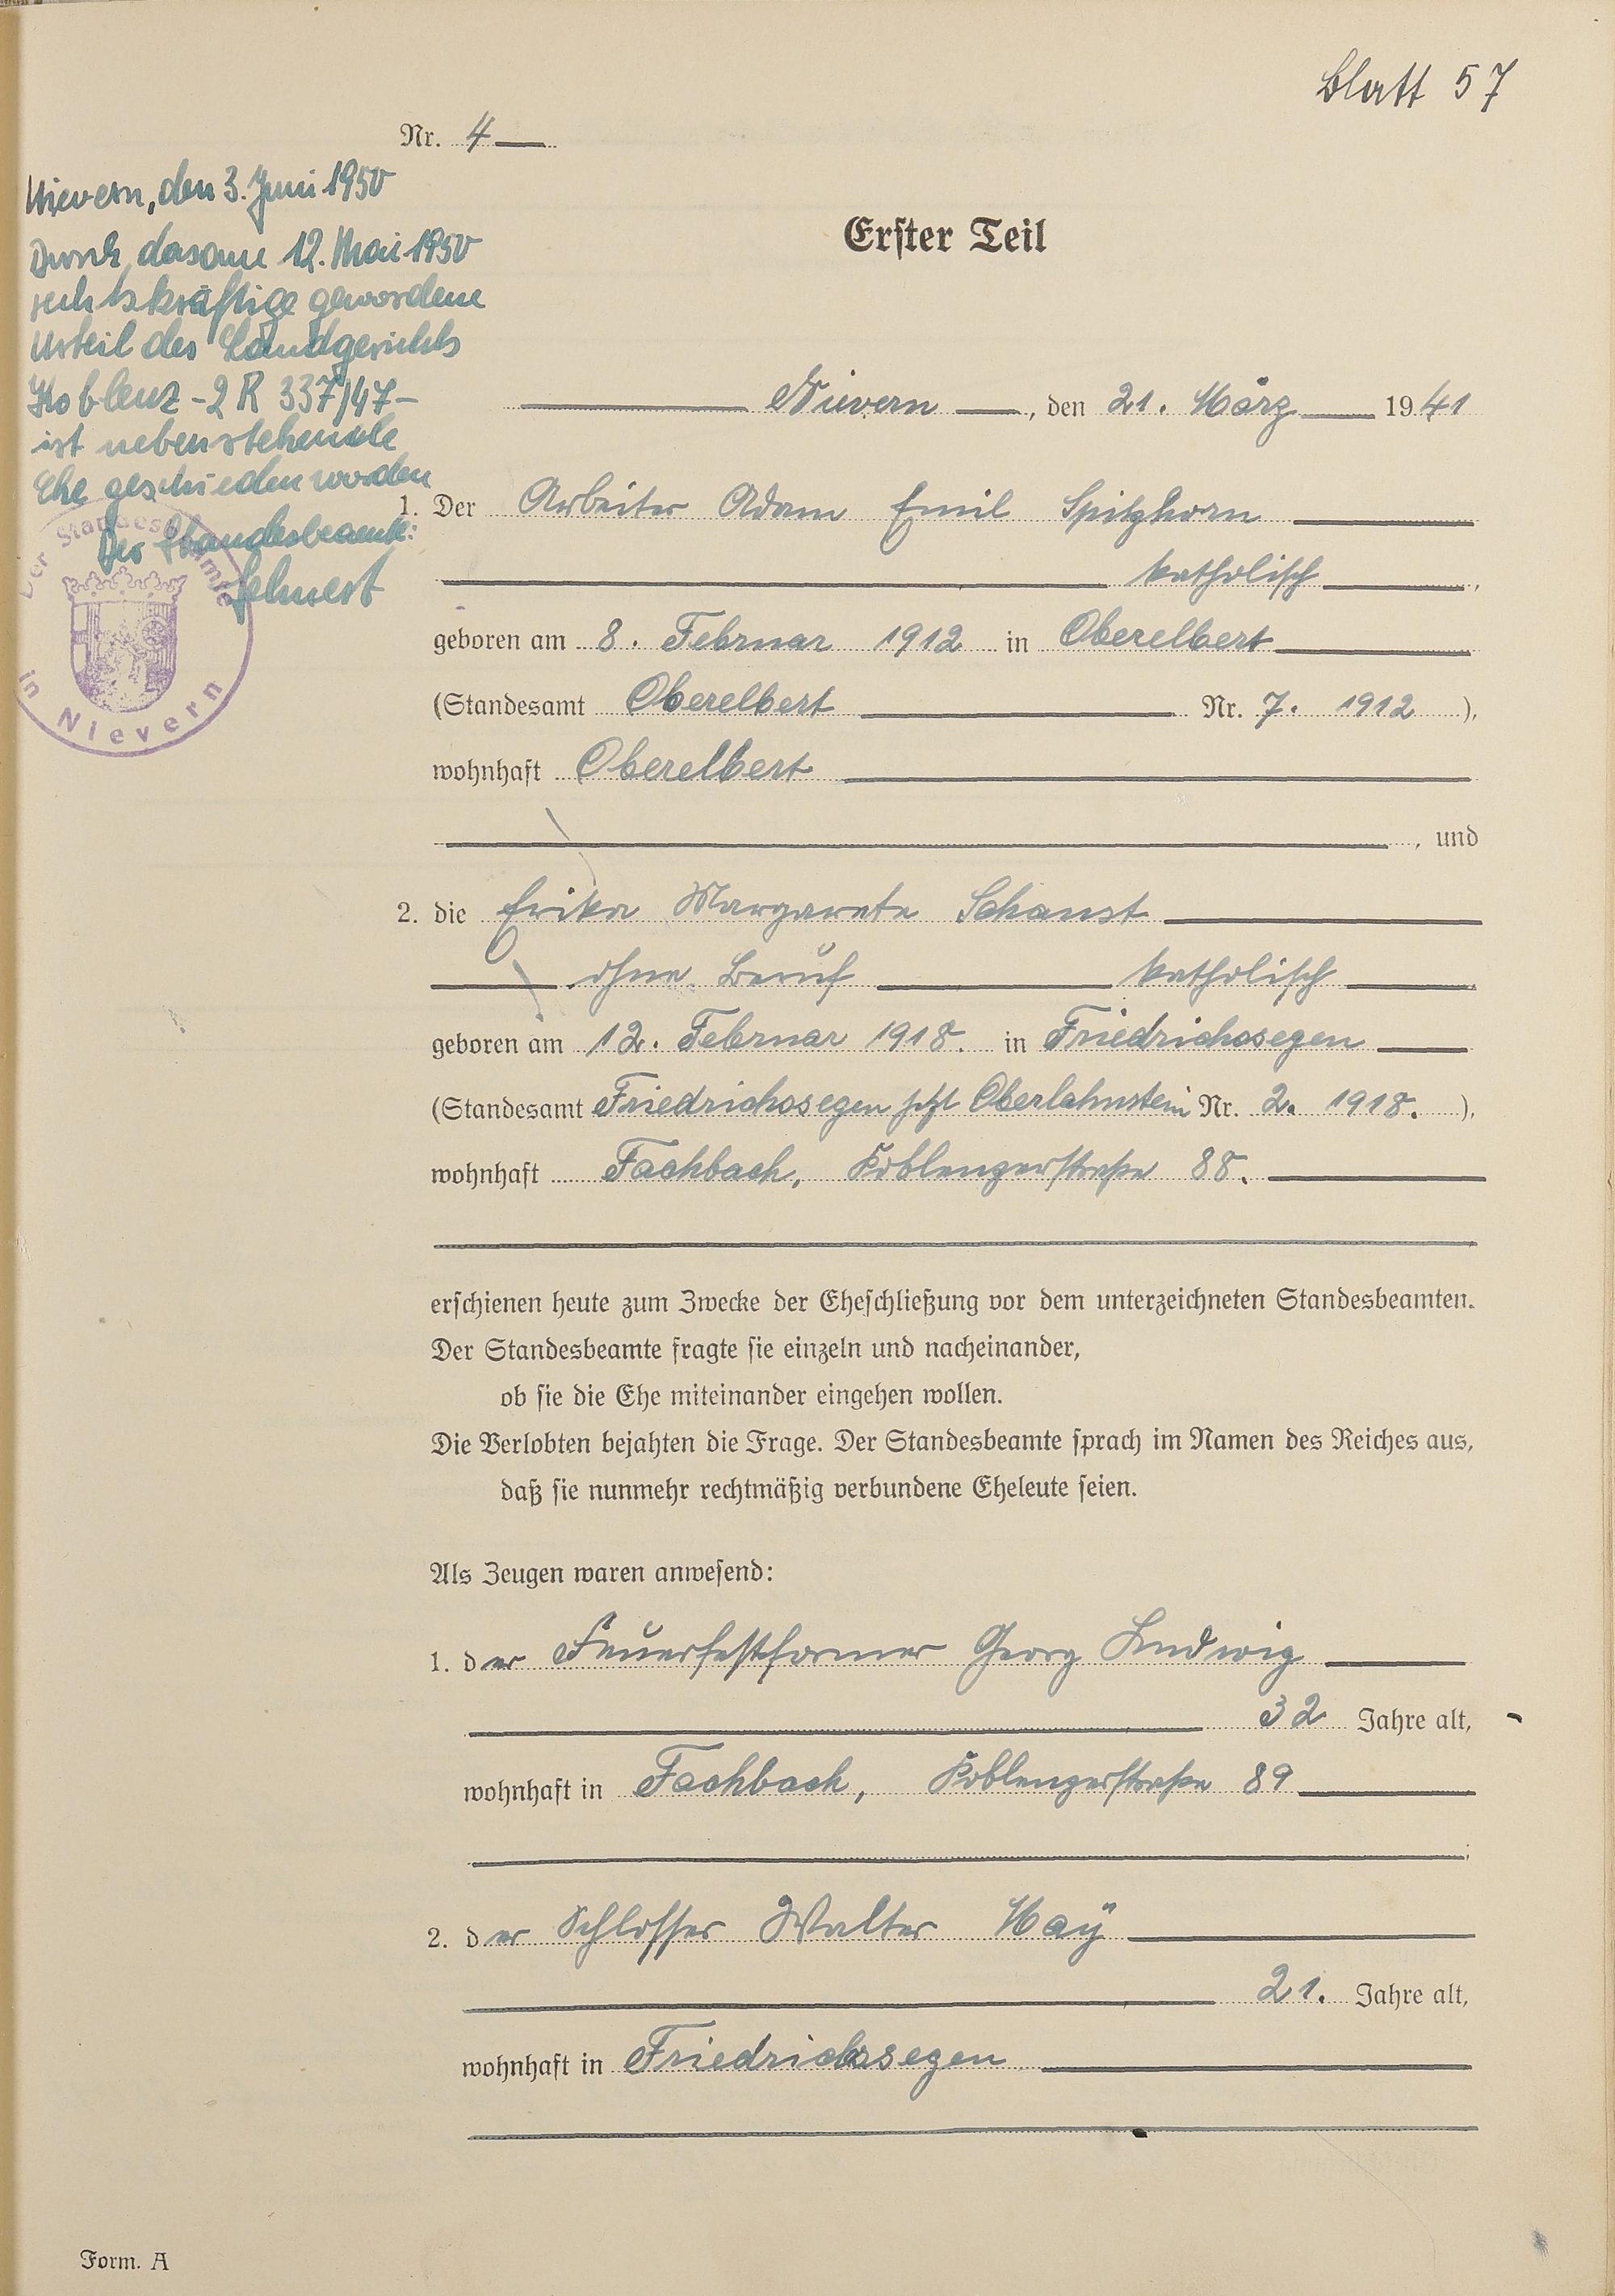 Blatt 57
Nr. 4
Nievern, den 3. Juni 1950
Durch das am 12. Mai 1950
rechtskräftige gewordene
Urteil des Landgerichts
Koblenz - 2 R 337/47 -
ist nebenstehende
Ehe geschieden worden
Der Standesbeamte:
Der Standesbeamte
in Nievern
Erster Teil
Nievern, den 21. März 1941
1. Der Arbeiter Adam Emil Spitzhorn
katholisch,
geboren am 8. Februar 1912 in Oberelbert
(Standesamt Oberelbert Nr. 7. 1912 ),
wohnhaft Oberelbert
, und
2. die Erika Margarete Schanst
ohne Beruf katholisch
geboren am 12. Februar 1918. in Friedrichssegen
(Standesamt Friedrichssegen jetzt Oberlahnstein Nr. 2. 1918. ),
wohnhaft Fachbach, Koblenzerstraße 88.
erschienen heute zum Zwecke der Eheschließung vor dem unterzeichneten Standesbeamten.
Der Standesbeamte fragte sie einzeln und nacheinander,
ob sie die Ehe miteinander eingehen wollen.
Die Verlobten bejahten die Frage. Der Standesbeamte sprach im Namen des Reiches aus,
daß sie nunmehr rechtmäßig verbundene Eheleute seien.
Als Zeugen waren anwesend:
1. der Feuerfestformer Georg Ludwig
32 Jahre alt,
wohnhaft in Fachbach, Koblenzerstraße 89
;
2. der Schlosser Walter Maÿ
21. Jahre alt,
wohnhaft in Friedrichssegen
Form. A